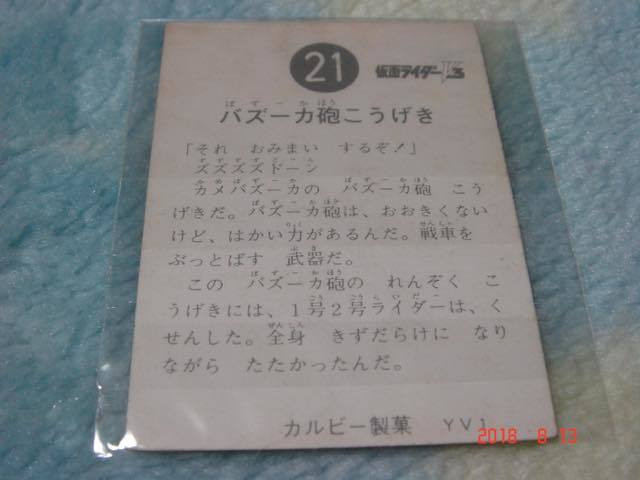 21
仮面ライダーV3
バズーカ砲こうげき
「それ おみまい するぞ!」
ズズズズドーン
カメバズーカの バズーカ砲 こう
げきだ。バズーカ砲は、おおきくない
けど、はかい力があるんだ。戦車を
ぶっとばす 武器だ。
この バズーカ砲の れんぞく こ
うげきには、1号2号ライダーは、く
せんした。全身 きずだらけに なり
ながら たたかったんだ。
カルビー製菓 YV1
2018 8 13